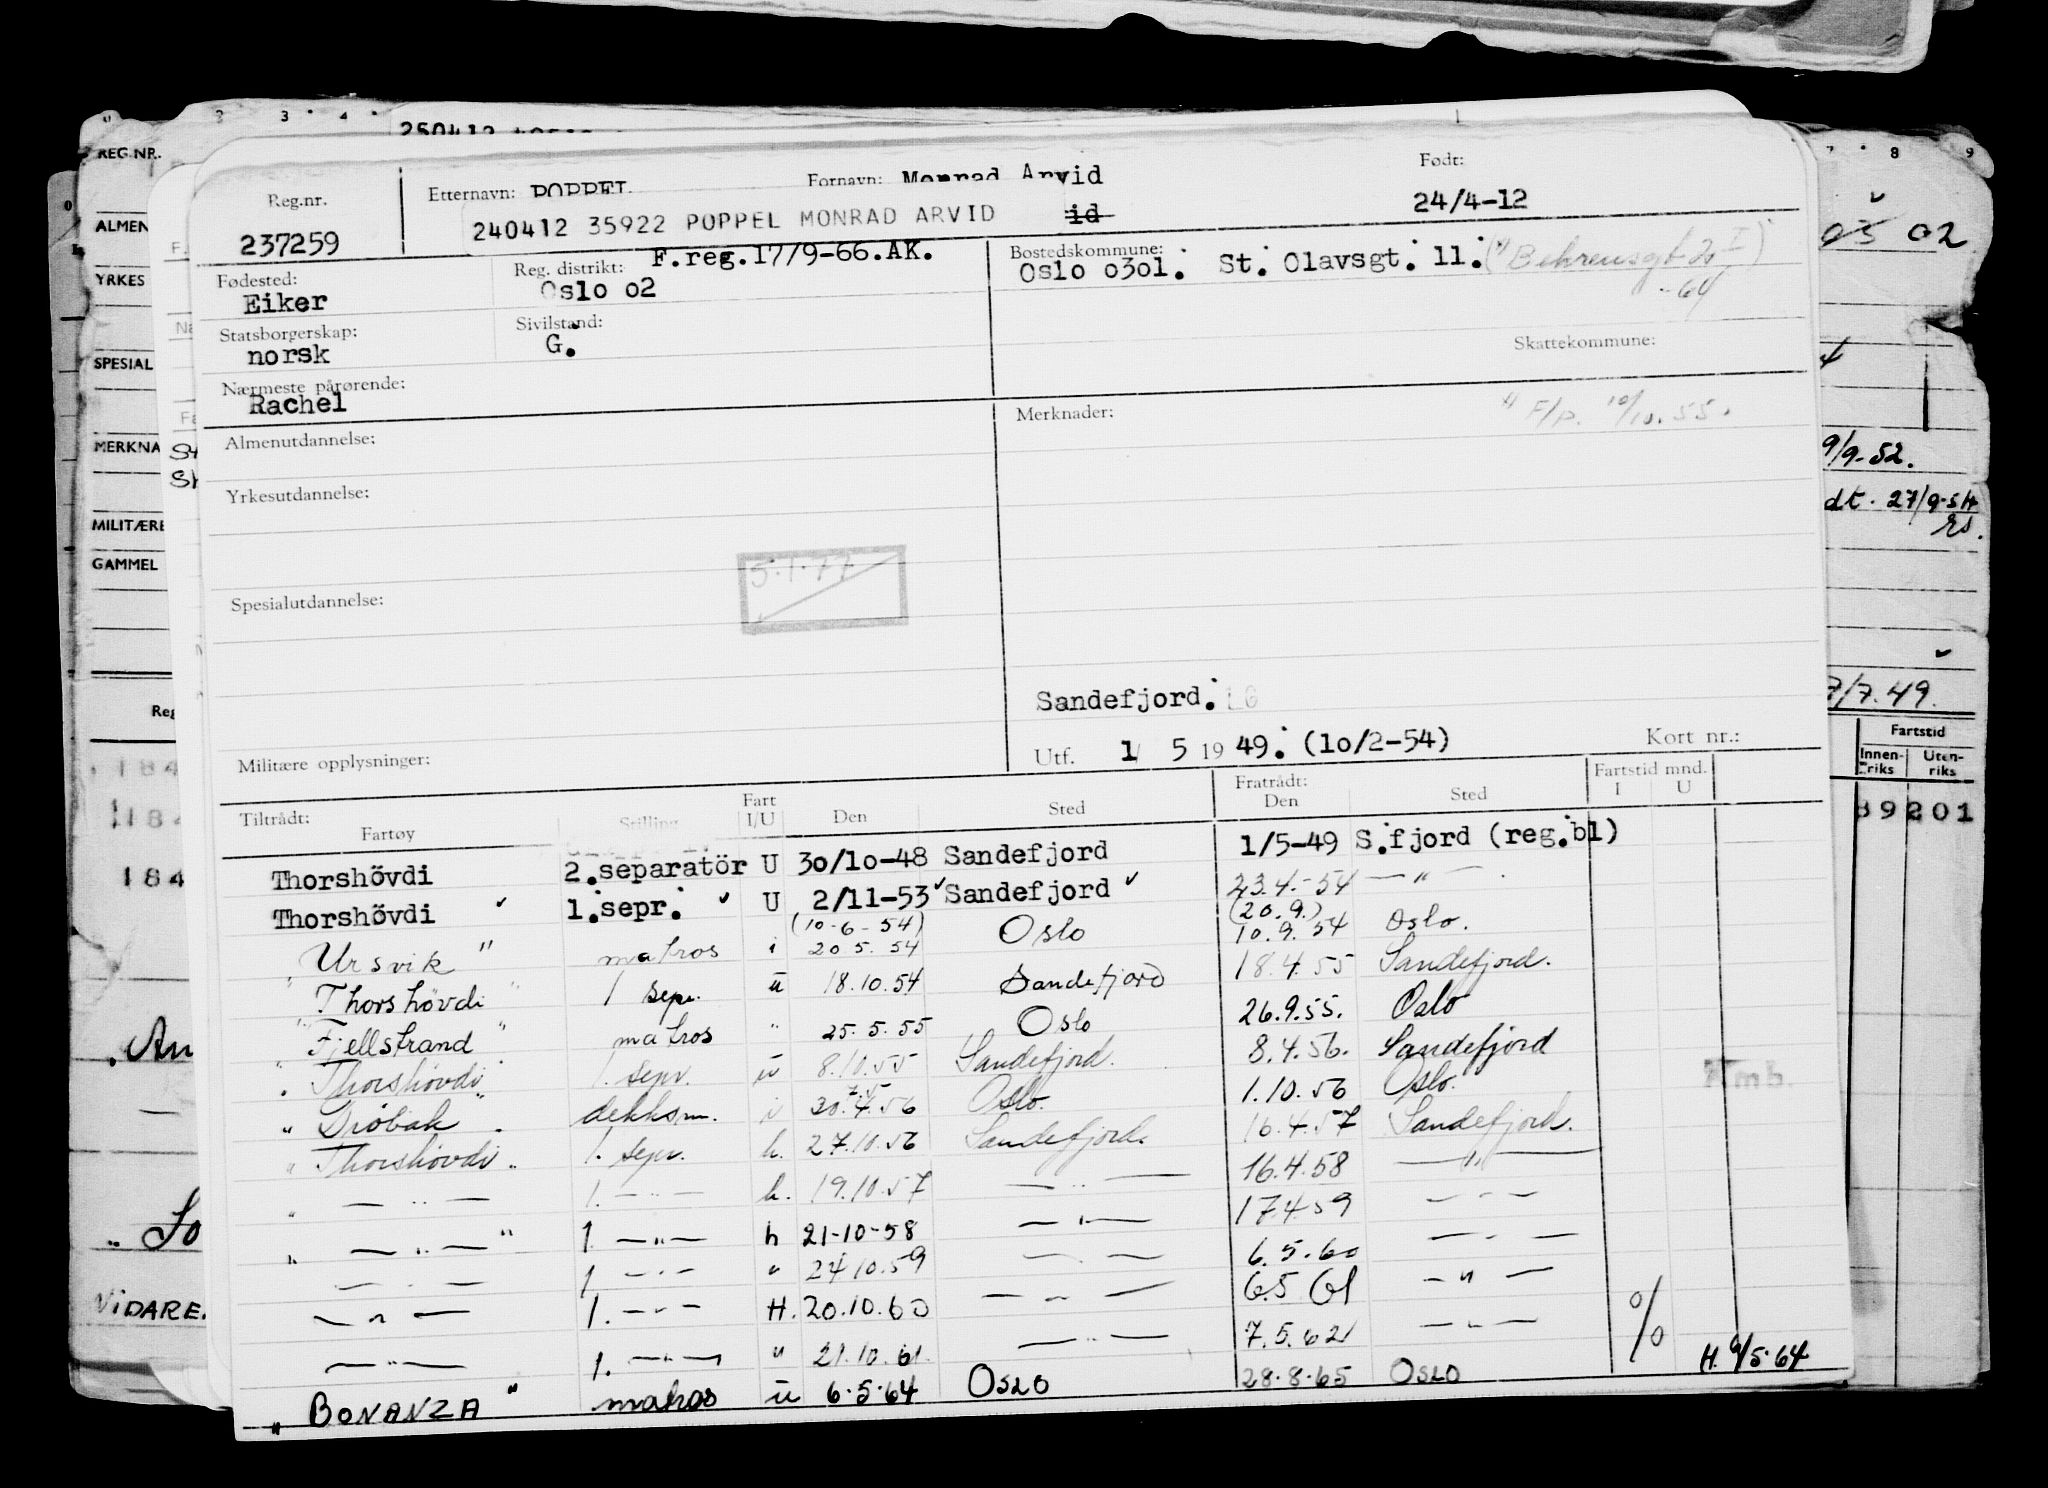 3 4
250412
REG.NR.
8 9
Reg.nr. Etternavn: POPPEL Fornavn: Monrad Arvid Født:
237259 240412 35922 POPPEL MONRAD ARVID id 24/4-12
ALMEN
02
Fødested: Reg. distrikt: F.reg.17/9-66.AK. Bostedskommune:
Eiker Oslo o2 Oslo o3o1. St. Olavsgt. 11. (Behrensgt 2 I)
-64
YRKES
Statsborgerskap: Sivilstand:
norsk G. Skattekommune:
SPESIAL
Nærmeste pårørende:
Rachel
Almenutdannelse: Merknader: F/p. 10/10.55.
MERKNA
9/9-52.
Yrkesutdannelse:
MILITÆRE
dt. 27/9-54
GAMMEL
5.1.77
Spesialutdannelse:
Sandefjord.
7/7.49.
Militære opplysninger: Utf. 1/ 5 1949. (1o/2-54) Kort nr.:
Fartstid
Innenriks Utenriks
89201
184
184
184
Tiltrådt: Fartøy Stilling Fart I/U Den Sted Fratrådt: Den Sted Fartstid mnd. I U
Thorshövdi 2.separatör U 3o/1o-48 Sandefjord 1/5-49 S.fjord (reg.bl)
Thorshövdi 1.sepr. U 2/11-53 Sandefjord 23.4.-54 — " —
"Ursvik" matros i (10-6-54) 20.5.54 Oslo (20.9.) 10.9.54 Oslo.
"Thorshövdi" 1 sepr. u 18.10.54 Sandefjord 18.4.55 Sandefjord.
"Fjellstrand" matros " 25.5.55 Oslo 26.9.55. Oslo
"Thorshövdi" 1. sepr. u 8.10.55 Sandefjord. 8.4.56. Sandefjord
"Drøbak" dekksm. i 7.5 30.4.56 Oslo. 1.10.56 Oslo.
"Thorshövdi" 1. sepr. h. 27.10.56 Sandefjord. 16.4.57 Sandefjord.
" — " — 1. — " — h. 19.10.57 — " — 16.4.58 — " —
" — " — " 1. — " — h 21-10-58 — " — 17.4.59 — " —
— " — 1 — " — " 24.10.59 — " — 6.5.60 — " —
— " — 1. — " — H. 20.10.60 — " — 6.5 61 — " —
— " — 1. — " — " 21.10.61. — " — 7.5.62 — " —
"BONANZA" matros u 6.5.64 OSLO 28.8.65 OSLO H. 9/5.64
VIDARE.